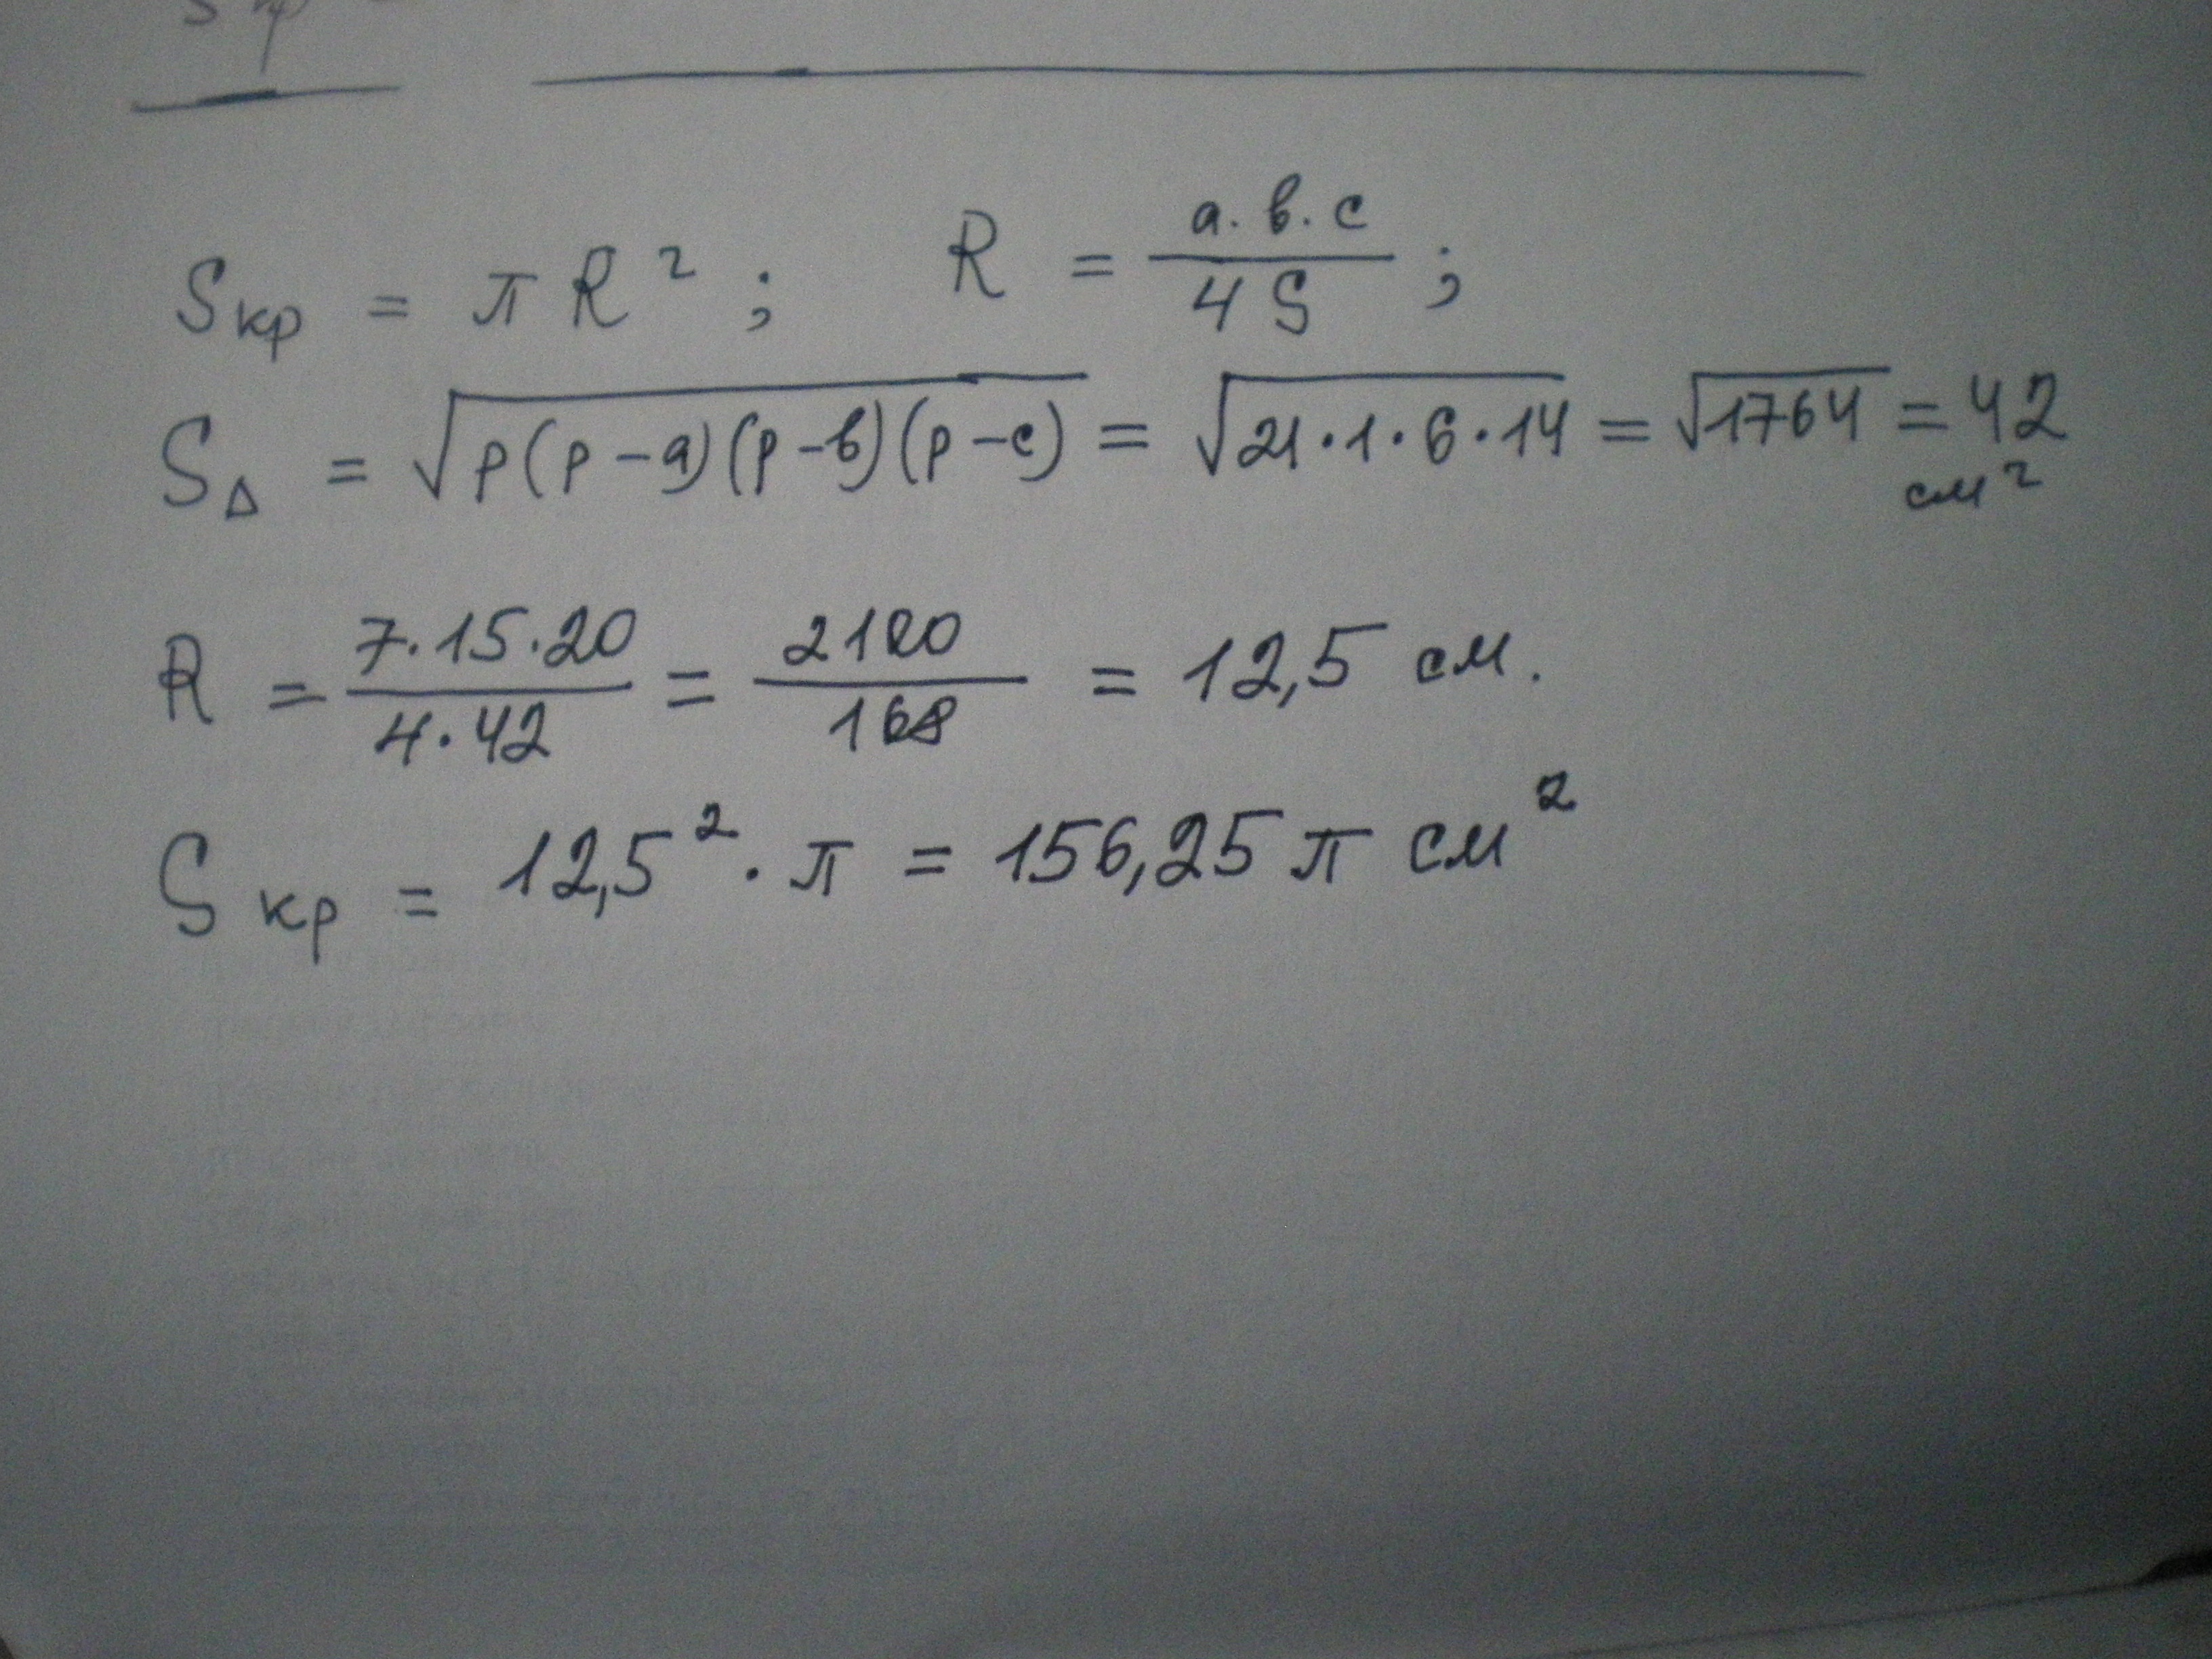 Sкр = π R²; R = a·b·c / 4S;
S△ = √p(p-a)(p-b)(p-c) = √21·1·6·14 = √1764 = 42 см²
R = 7·15·20 / 4·42 = 2100 / 168 = 12,5 см.
Sкр = 12,5²·π = 156,25 π см²